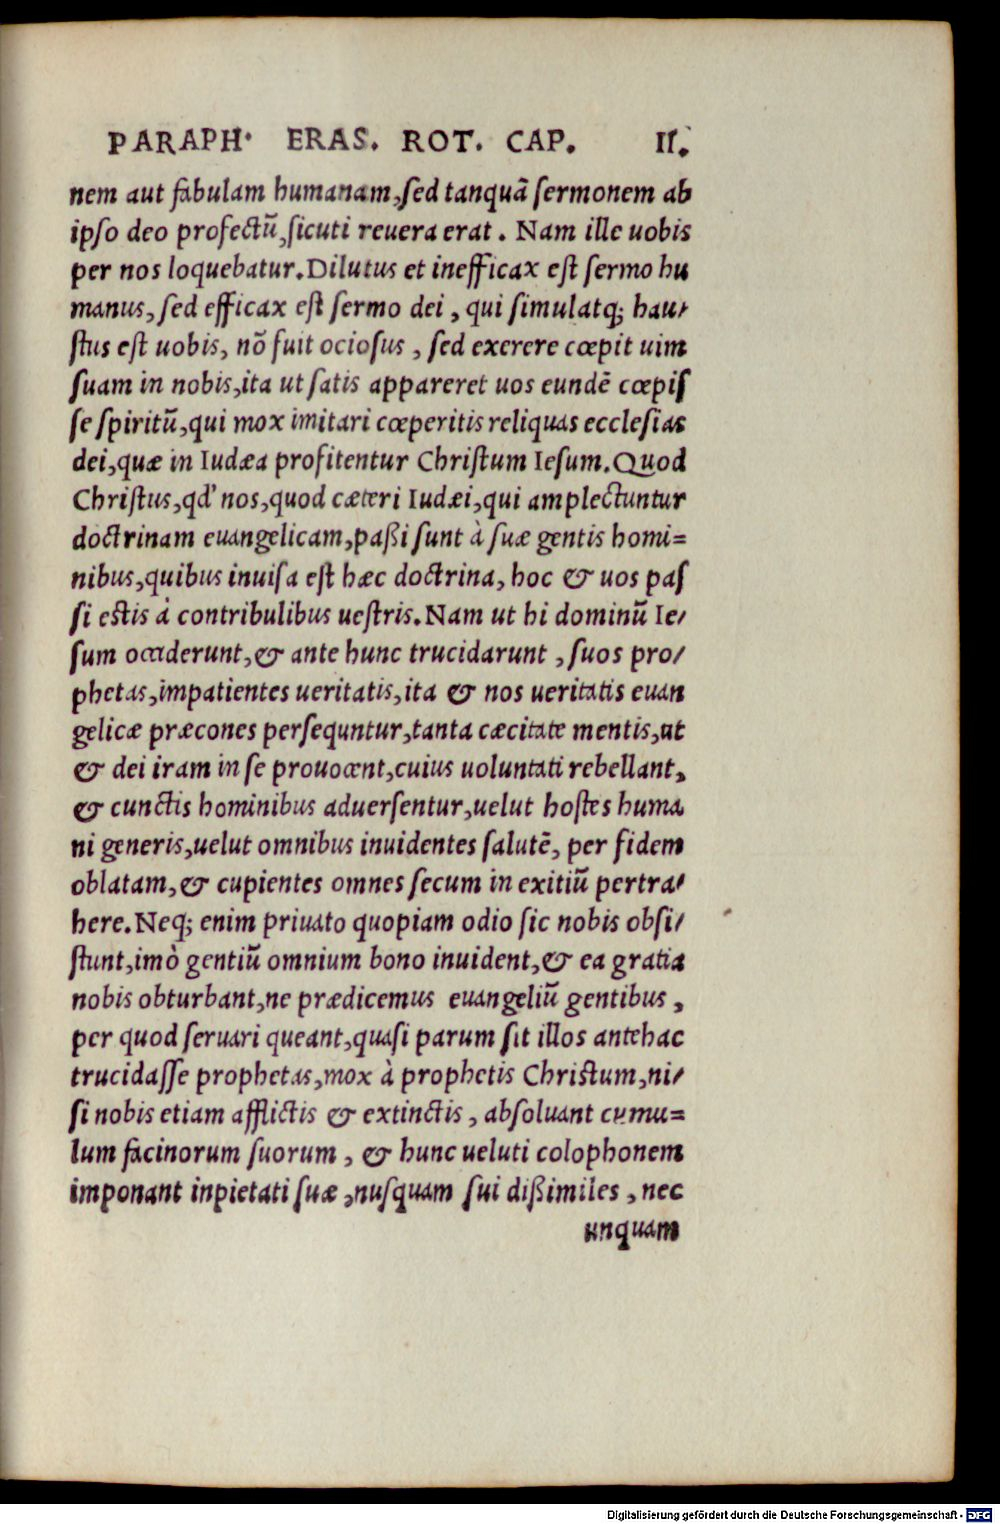 PARAPH. ERAS. ROT. CAP. II.
nem aut fabulam humanam, ſed tanquã ſermonem ab
ipſo deo profectũ, ſicuti reuera erat. Nam ille uobis
per nos loquebatur. Dilutus et inefficax eſt ſermo hu
manus, ſed efficax eſt ſermo dei, qui ſimulatq; hau/
ſtus eſt uobis, nõ fuit ocioſus, ſed exerere cœpit uim
ſuam in nobis, ita ut ſatis appareret uos eundẽ cœpiſ
ſe ſpiritũ, qui mox imitari cœperitis reliquas eccleſias
dei, quæ in Iudæa profitentur Chriſtum Ieſum. Quod
Chriſtus, qd' nos, quod cæteri Iudæi, qui amplectuntur
doctrinam euangelicam, paßi ſunt à ſuæ gentis homi=
nibus, quibus inuiſa eſt hæc doctrina, hoc & uos paſ
ſi eſtis à contribulibus ueſtris. Nam ut hi dominũ Ie/
ſum occiderunt, & ante hunc trucidarunt, ſuos pro/
phetas, impatientes ueritatis, ita & nos ueritatis euan
gelicæ præcones perſequntur, tanta cæcitate mentis, ut
& dei iram in ſe prouocent, cuius uoluntati rebellant,
& cunctis hominibus aduerſentur, uelut hoſtes huma
ni generis, uelut omnibus inuidentes ſalutẽ, per fidem
oblatam, & cupientes omnes ſecum in exitiũ pertra/
here. Neq; enim priuato quopiam odio ſic nobis obſi/
ſtunt, imò gentiũ omnium bono inuident, & ea gratia
nobis obturbant, ne prædicemus euangeliũ gentibus,
per quod ſeruari queant, quaſi parum ſit illos antehac
trucidaſſe prophetas, mox à prophetis Chriſtum, ni/
ſi nobis etiam afflictis & extinctis, abſoluant cumu=
lum facinorum ſuorum, & hunc ueluti colophonem
imponant inpietati ſuæ, nuſquam ſui dißimiles, nec
unquam
Digitalisierung gefördert durch die Deutsche Forschungsgemeinschaft - DFG